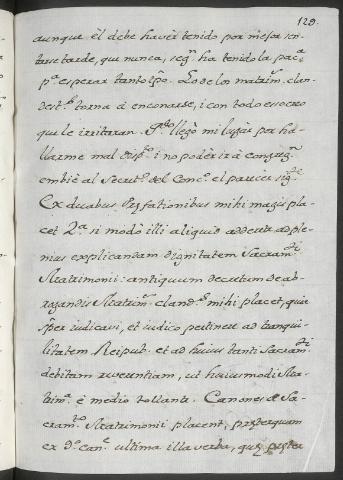 129.
aunque èl debe haver tenido por mejor sen-
tarse tarde, que nunca, segⁿ ha tenido la pacª
pª esperar tanto tpô. Lo de los matrimˢ clan-
destˢ torna à enconarse, i con todo esso creo
que le irritaran. Qdo llegò mi lugàr por ha-
llarme mal dispᵗᵒ i no podèr ir à congregⁿ
embiè al Secretº del Concº el parecer sigᵗᵉ
Ex duabus Præfationibus mihi magis pla-
cet 2ª si modò illi aliquid addetur ad ple-
nius explicandam dignitatem Sacramᵗⁱ
Matrimonii: antiquum decretum de ab-
rogandis Matrimˢ clandˢ mihi placet, quia
sper iudicavi, et iudico pertinere ad tranqui-
litatem Reipub. et ad huius tanti Sacramᵗⁱ
debitam reverentiam, ut huiusmodi Ma-
trimª è medio tollantˢ. Canones de Sa-
cramᵗᵒ Matrimonii placent, præterquam
ex 3º canᵉ ultima illa verba, quæ præter